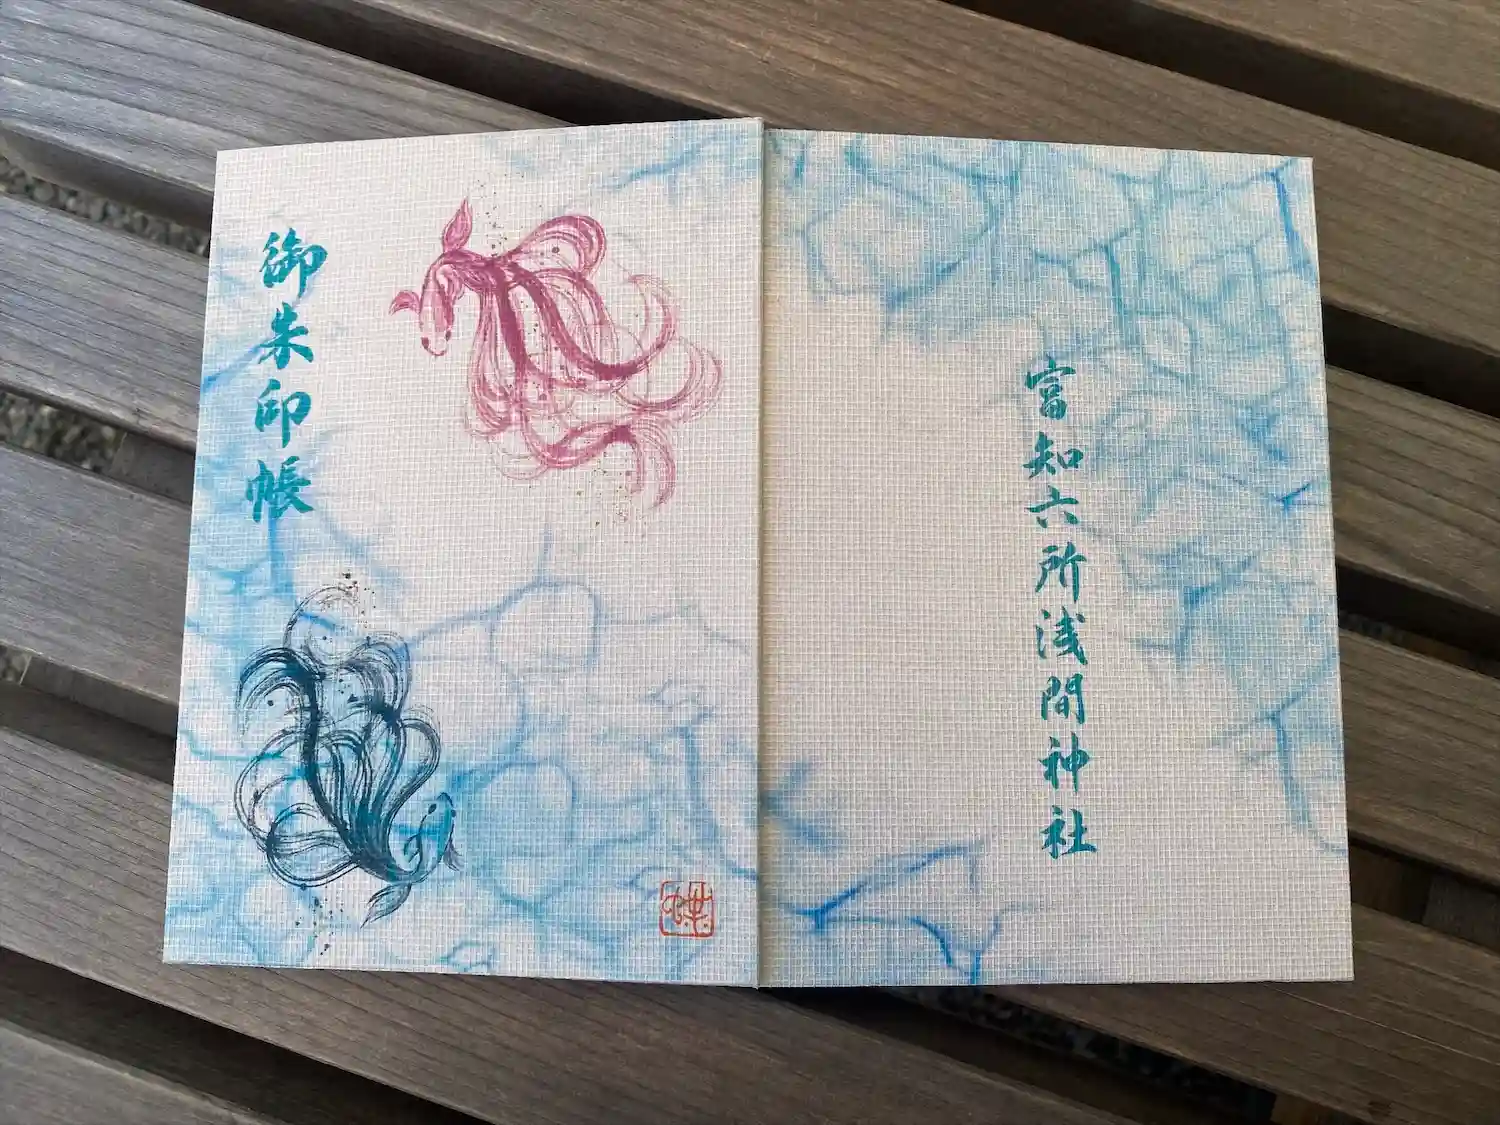 御朱印帳
富知六所浅間神社
蝶